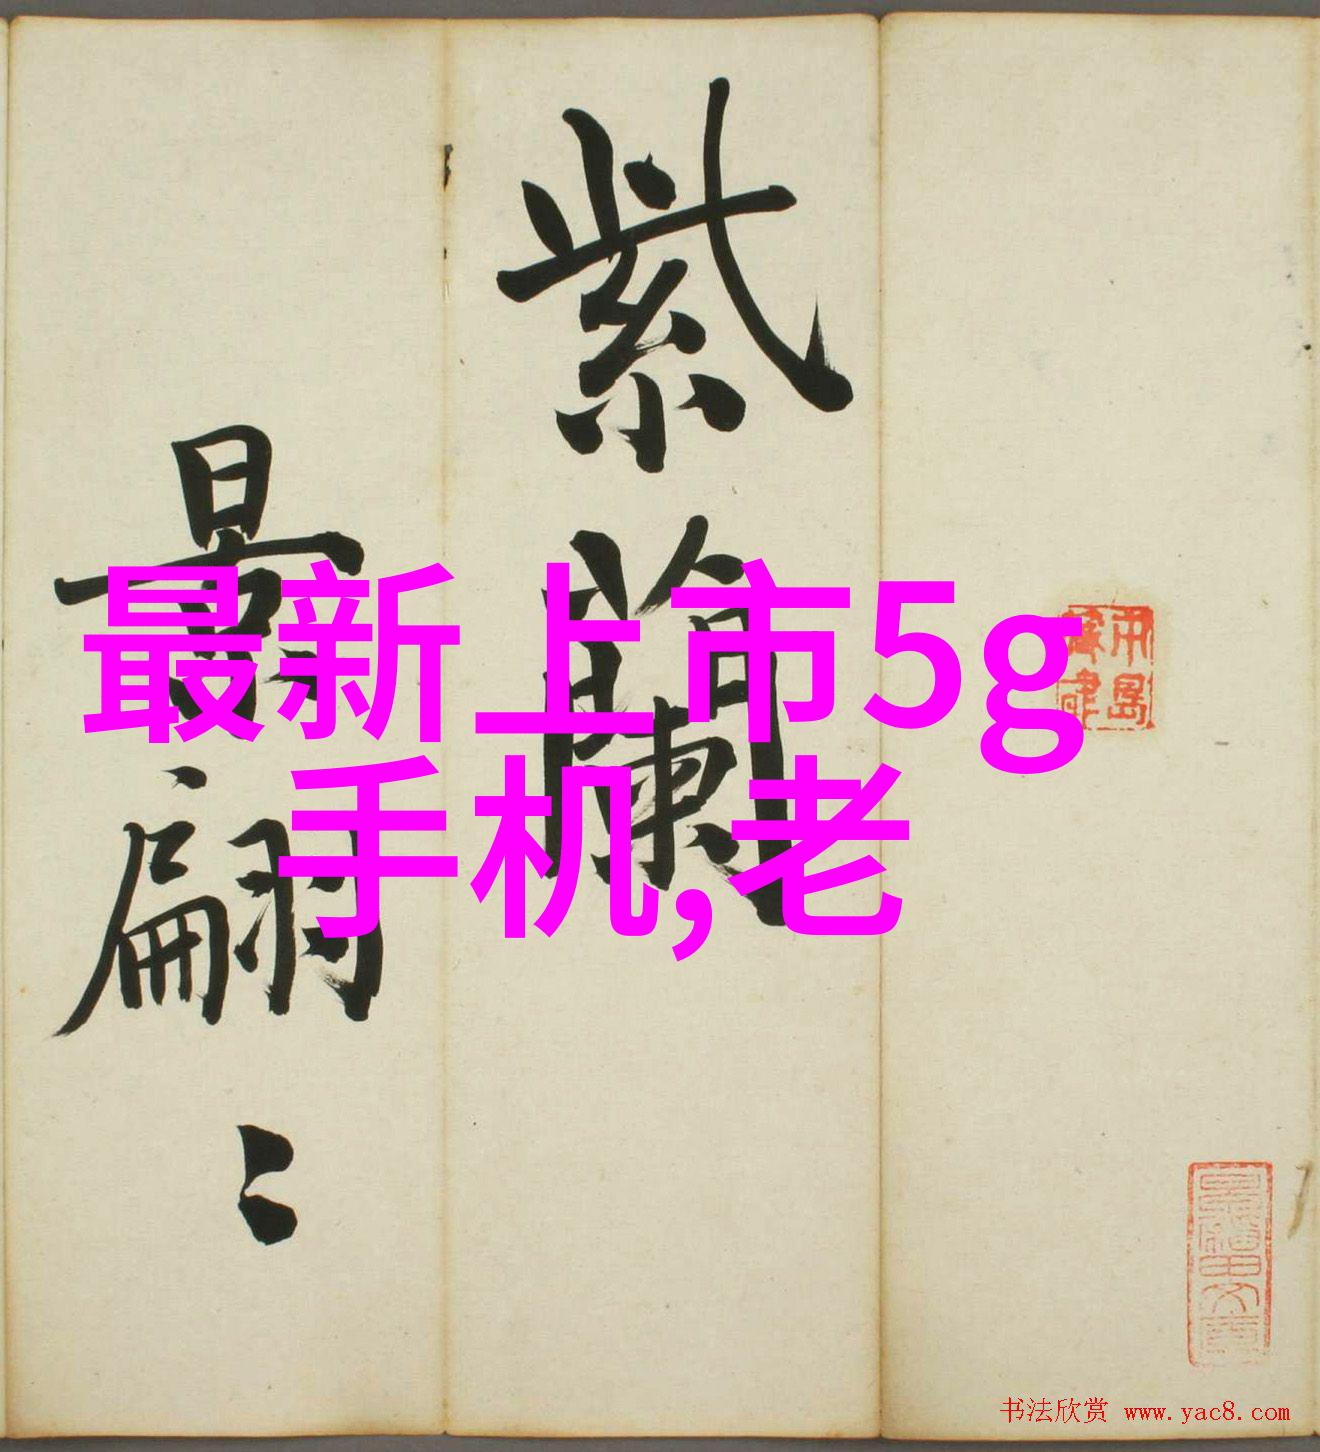 紫蘭
最翩〻
最新上市5g
手机,老
书法欣赏 www.yac8.com